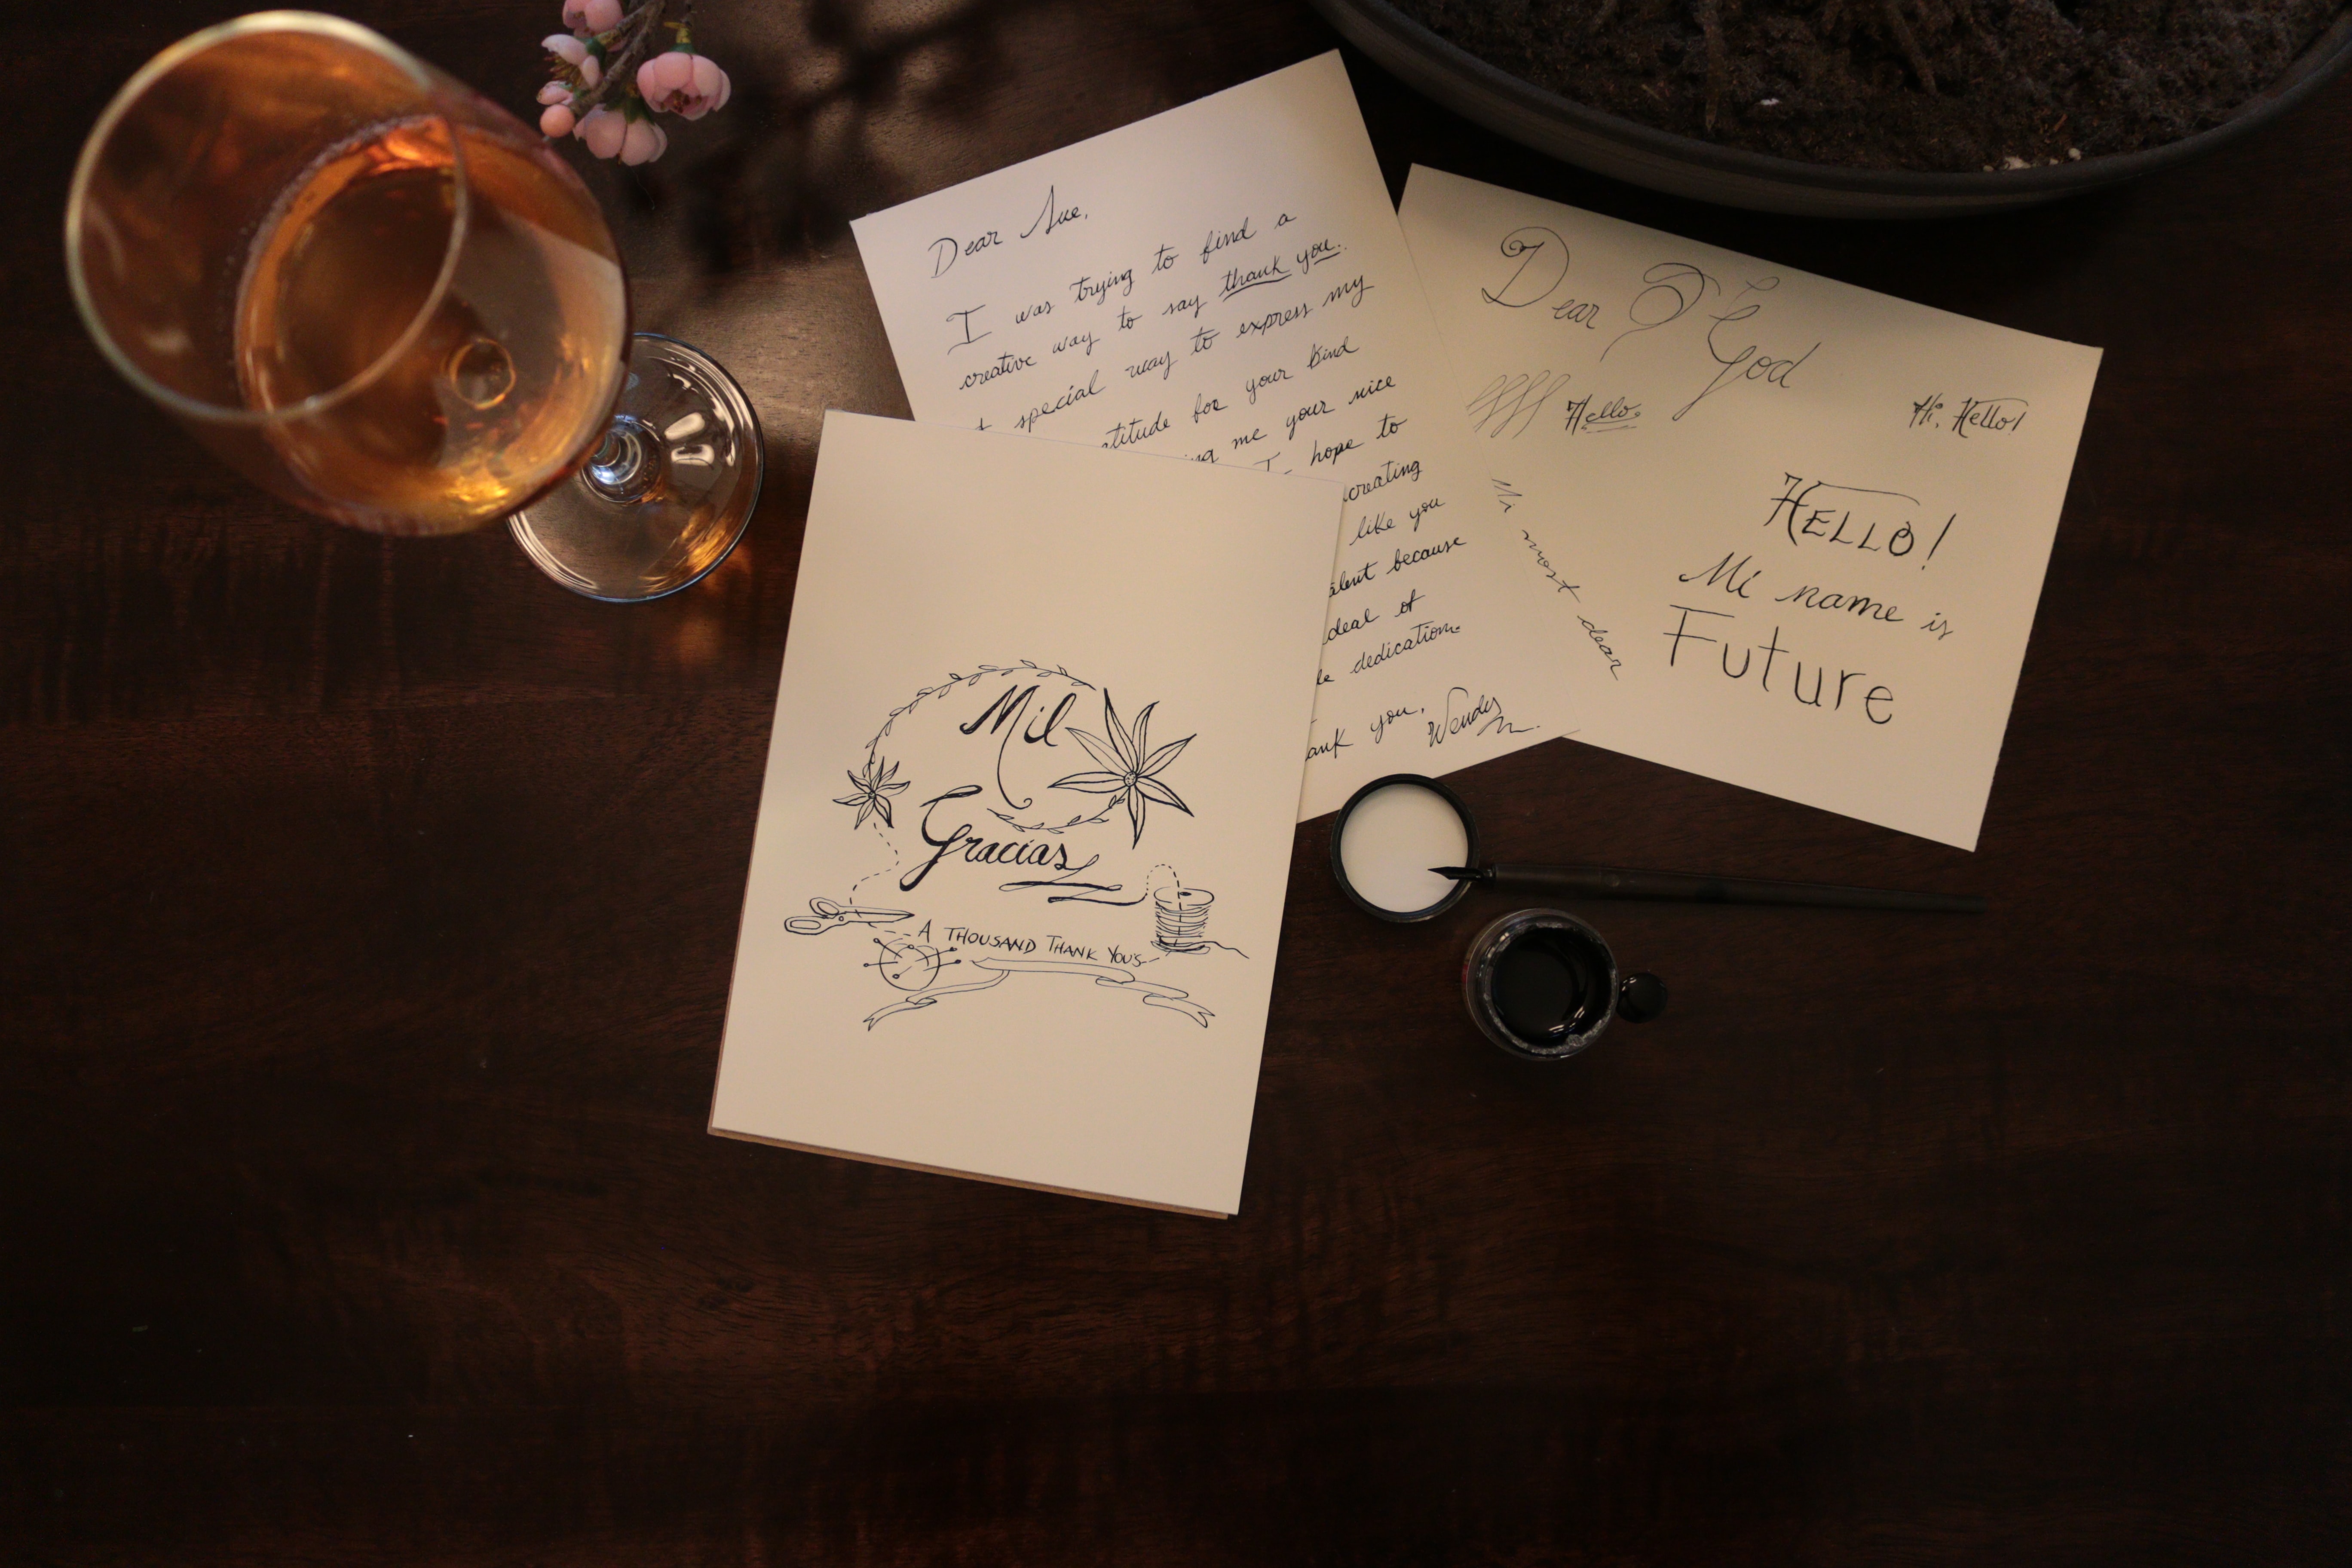 Dear Sue,
I was trying to find a
creative way to say thank you.
special way to express my
for your kind
me your nice
I hope to
creating
like you
because
deal of
dedication.
you,
Wendy
Dear God
Hello.
Hi, Hello!
HELLO!
Mi name is
Future
Mi most dear
Mil
Gracias
A THOUSAND THANK YOU'S